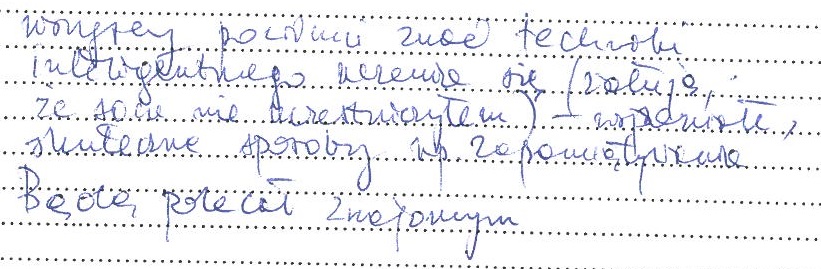 wszyscy powinni znać techniki
inteligentnego uczenia się (żałuję,
że sam nie uczestniczyłem) - wspaniałe,
skuteczne sposoby np. zapamiętywania
Będę polecał znajomym